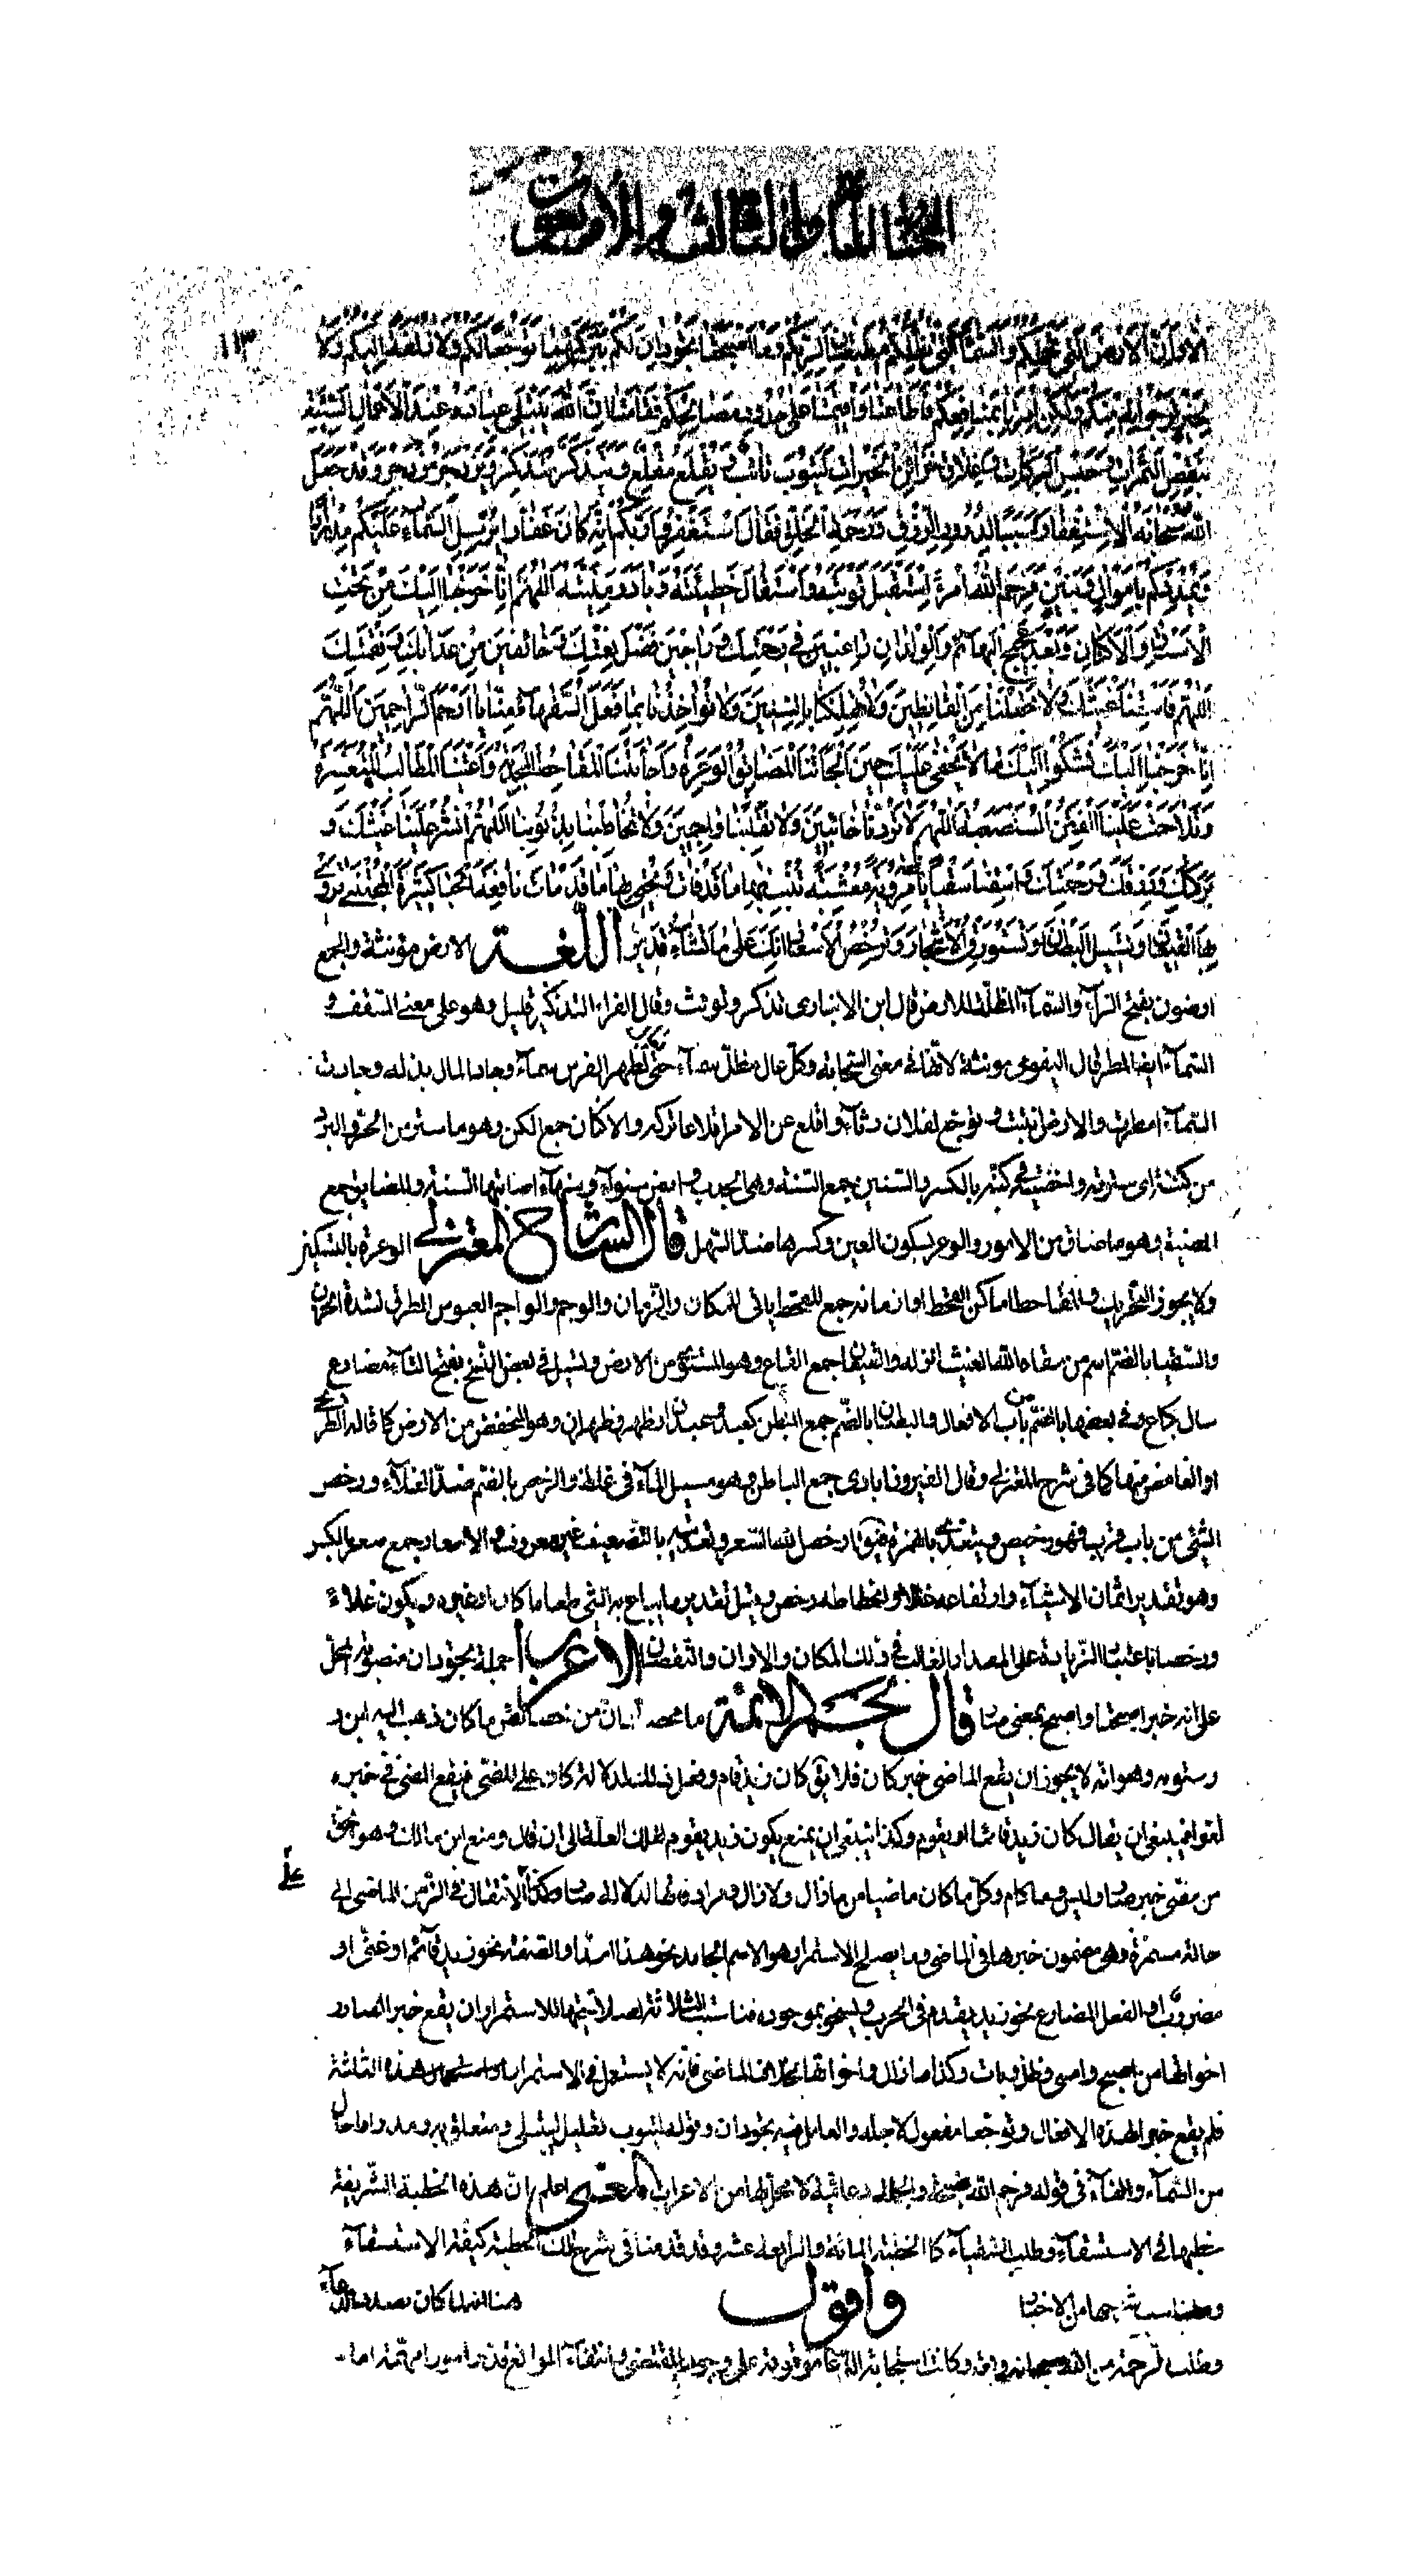 المختار المأة والثالث والاربعون
١١٣
اَلا وَاِنَّ الاَرْضَ الَّتي تَحْمِلُكُمْ وَالسَّمَاءَ الَّتي تُظِلُّكُمْ مُطيعَتانِ لِرَبِّكُمْ وَما اَصْبَحَتا تَجُودانِ لَكُمْ بِبَرَكَتِهِما تَوَجُّعاً لَكُمْ وَلا زُلْفَةً اِلَيْكُمْ وَلا
لِخَيْرٍ تَرْجُوانِهِ مِنْكُمْ وَلكِنْ اُمِرَتا بِمَنافِعِكُمْ فَاَطاعَتا وَاُقيمَتا عَلى حُدُودِ مَصالِحِكُمْ فَقامَتا اِنَّ اللهَ يَبْتَلي عِبادَهُ عِنْدَ الاَعْمالِ السَّيِّئَةِ
بِنَقْصِ الثَّمَراتِ وَحَبْسِ البَرَكاتِ وَاِغْلاقِ خَزائِنِ الخَيْراتِ لِيَتُوبَ تائِبٌ وَيُقْلِعَ مُقْلِعٌ وَيَتَذَكَّرَ مُتَذَكِّرٌ وَيَزْدَجِرَ مُزْدَجِرٌ وَقَدْ جَعَلَ
اللهُ سُبْحانَهُ الاِسْتِغْفارَ سَبَباً لِدُرُورِ الرِّزْقِ وَرَحْمَةِ الخَلْقِ فَقالَ اسْتَغْفِرُوا رَبَّكُمْ اِنَّهُ كانَ غَفّاراً يُرْسِلِ السَّماءَ عَلَيْكُمْ مِدْراراً
وَيُمْدِدْكُمْ بِاَمْوالٍ وَبَنينَ فَرَحِمَ اللهُ امْرَءً اِسْتَقْبَلَ تَوْبَتَهُ وَاسْتَقالَ خَطيئَتَهُ وَبادَرَ مَنِيَّتَهُ اَللّهُمَّ اِنّا خَرَجْنا اِلَيْكَ مِنْ تَحْتِ
الاَسْتارِ وَالاَكْنانِ وَبَعْدَ عَجيجِ البَهائِمِ وَالوِلْدانِ راغِبينَ في رَحْمَتِكَ وَراجينَ فَضْلَ نِعْمَتِكَ وَخائِفينَ مِنْ عَذابِكَ وَنِقْمَتِكَ
اَللّهُمَّ فَاسْقِنا غَيْثَكَ وَلا تَجْعَلْنا مِنَ القانِطينَ وَلا تُهْلِكْنا بِالسِّنينَ وَلا تُؤاخِذْنا بِما فَعَلَ السُّفَهاءُ مِنّا يا اَرْحَمَ الرّاحِمينَ اَللّهُمَّ
اِنّا خَرَجْنا اِلَيْكَ نَشْكُوا اِلَيْكَ ما لا يَخْفى عَلَيْكَ حينَ اَلْجَاَتْنَا المَضائِقُ الوَعْرَةُ وَاَجائَتْنَا المَقاحِطُ المُجْدِبَةُ وَاَعْيَتْنَا المَطالِبُ المُتَعَسِّرَةُ
وَتَلاحَمَتْ عَلَيْنَا الفِتَنُ المُسْتَصْعِبَةُ اَللّهُمَّ لا تَرُدَّنا خائِبينَ وَلا تَقْلِبْنا واجِمينَ وَلا تُخاطِبْنا بِذُنُوبِنا اَللّهُمَّ انْشُرْ عَلَيْنا غَيْثَكَ وَ
بَرَكَتَكَ وَرِزْقَكَ وَرَحْمَتَكَ وَاسْقِنا سُقْيا مُرْوِيَةً مُعْشِبَةً تُنْبِتُ بِها ما قَدْ فاتَ وَتُحْيي بِها ما قَدْ ماتَ نافِعَةَ الحَيا كَثيرَةَ المُجْتَنى تُرْوي
بِهَا القيعانَ وَتُسيلُ البُطْنانَ وَتَسْتَوْرِقُ الاَشْجارَ وَتُرْخِصُ الاَسْعارَ اِنَّكَ عَلى ما تَشاءُ قَديرٌ اللغة الارض مؤنثة والجمع
ارضون بفتح الراء والسماء المظلة للارض قال ابن الانبارى تذكر وتؤنث وقال الفراء التذكير قليل وهو على معنى السقف و
السماء ايضا المطر قال الفيومى مؤنثة لانها فى معنى السحابة وكل عال مظل سماء حتى يقال لظهر الفرس سماء وجاد المال بذله وجادت
السماء امطرت والارض انبتت وتوجع لفلان رثاه واقلع عن الامر اقلاعا تركه والاكنان جمع الكن وهو ما ستر من الحر والبرد
من كننته اى سترته واخفيته فى كنه بالكسر والسنين جمع السنة وهى الجدب وارض سنواء وسنهاء اصابتها السنة والمضايق جمع
المضيق وهو ما ضاق من الامور والوعر بسكون العين وكسرها ضد السهل قال الشارح المعتزلى الوعرة بالتسكين
ولا يجوز التحريك والمقاحط اماكن القحط او ازمانه جمع المقحط ياتى للمكان والزمان والوجم والواجم العبوس المطرق لشدة الحزن
والسقيا بالضم اسم من سقاه الله الغيث انزله والقيعان جمع القاع وهو المستوى من الارض وتسيل فى بعض النسخ بفتح التاء مضارع
سال كباع وفى بعضها بالضم من باب الافعال والبطنان بالضم جمع البطن كعبد وعبدان وظهر وظهران وهو المنخفض من الارض كما قاله الطريحى
او الغامض منها كما فى شرح المعتزلى وقال الفيروزابادى جمع الباطن وهو مسيل الماء فى غلظ والرخص بالضم ضد الغلاء ورخص
الشىء من باب قرب فهو رخيص ويتعدى بالهمزة فيق ارخص الله السعر وتعديته بالتضعيف غير معروف والاسعار جمع سعر بالكسر
وهو تقدير اثمان الاشياء وارتفاعه غلاء وانحطاطه رخص وقيل تقدير ما يباع به الشىء طعاما كان او غيره ويكون غلاء
ورخصا باعتبار الزيادة على المقدار الغالب فى ذلك المكان والاوان والنقصان الاعراب جملة تجودان منصوبة المحل
على انه خبر اصبحتا واصبح بمعنى صار قال نجم الائمة ما محصله ان من خصائص ما كان ذهب اليه ابن د
رستويه وهو انه لا يجوز ان يقع الماضى خبر كان فلا يق كان زيد قام ولعل ذلك لدلالة كان على المضى فيقع المضى فى خبره
لغوا فينبغى ان يقال كان زيد قائما او يقوم وكذا ينبغى ان يمنع يكون زيد يقوم لتلك العلة الى ان قال ومنع ابن مالك وهو الحق
من مضى خبر صار وليس وما دام وكل ما كان ماضيا من ما زال ولا زال ومرادفاتها لدلالة صار على الانتقال فى الزمن الماضى الى
على
حالة مستمرة وهى مضمون خبرها فى الماضى وما يصلح للاستمرار هو الاسم الجامد نحو هذا اسد او الصفة نحو زيد قائم او غنى او
مضروب او الفعل المضارع نحو زيد يقدم فى الحرب ويسخو بموجوده فناسبت الثلاثة لصلاحيتها للاستمرار ان يقع خبر الصار و
اخواتها من اصبح وامسى وظل وبات وكذا ما زال واخواتها بخلاف الماضى فانه لا يستعمل فى الاستمرار استعمال هذه الثلثة
فلم يقع خبرا لهذه الافعال وتوجعا مفعول لاجله والعامل فيه تجودان وقوله ليتوب تعليل ليبتلى ومتعلق به ومدرارا حال
من السماء والفاء فى قوله فرحم الله فصيحة والجملة دعائية لا محل لها من الاعراب المعنى اعلم ان هذه الخطبة الشريفة
خطبها فى الاستسقاء وطلب السقياء كالخطبة المائة والرابعة عشر وقد قدمنا فى شرح تلك الخطبة كيفية الاستسقاء
وما يناسبها من الاخبار واقول هنا انه لما كان بصدد الدعاء
وطلب الرحمة من الله سبحانه وكانت استجابة الدعاء موقوفة على وجود المقتضى وانتفاء الموانع قدم امورا مهمة امام